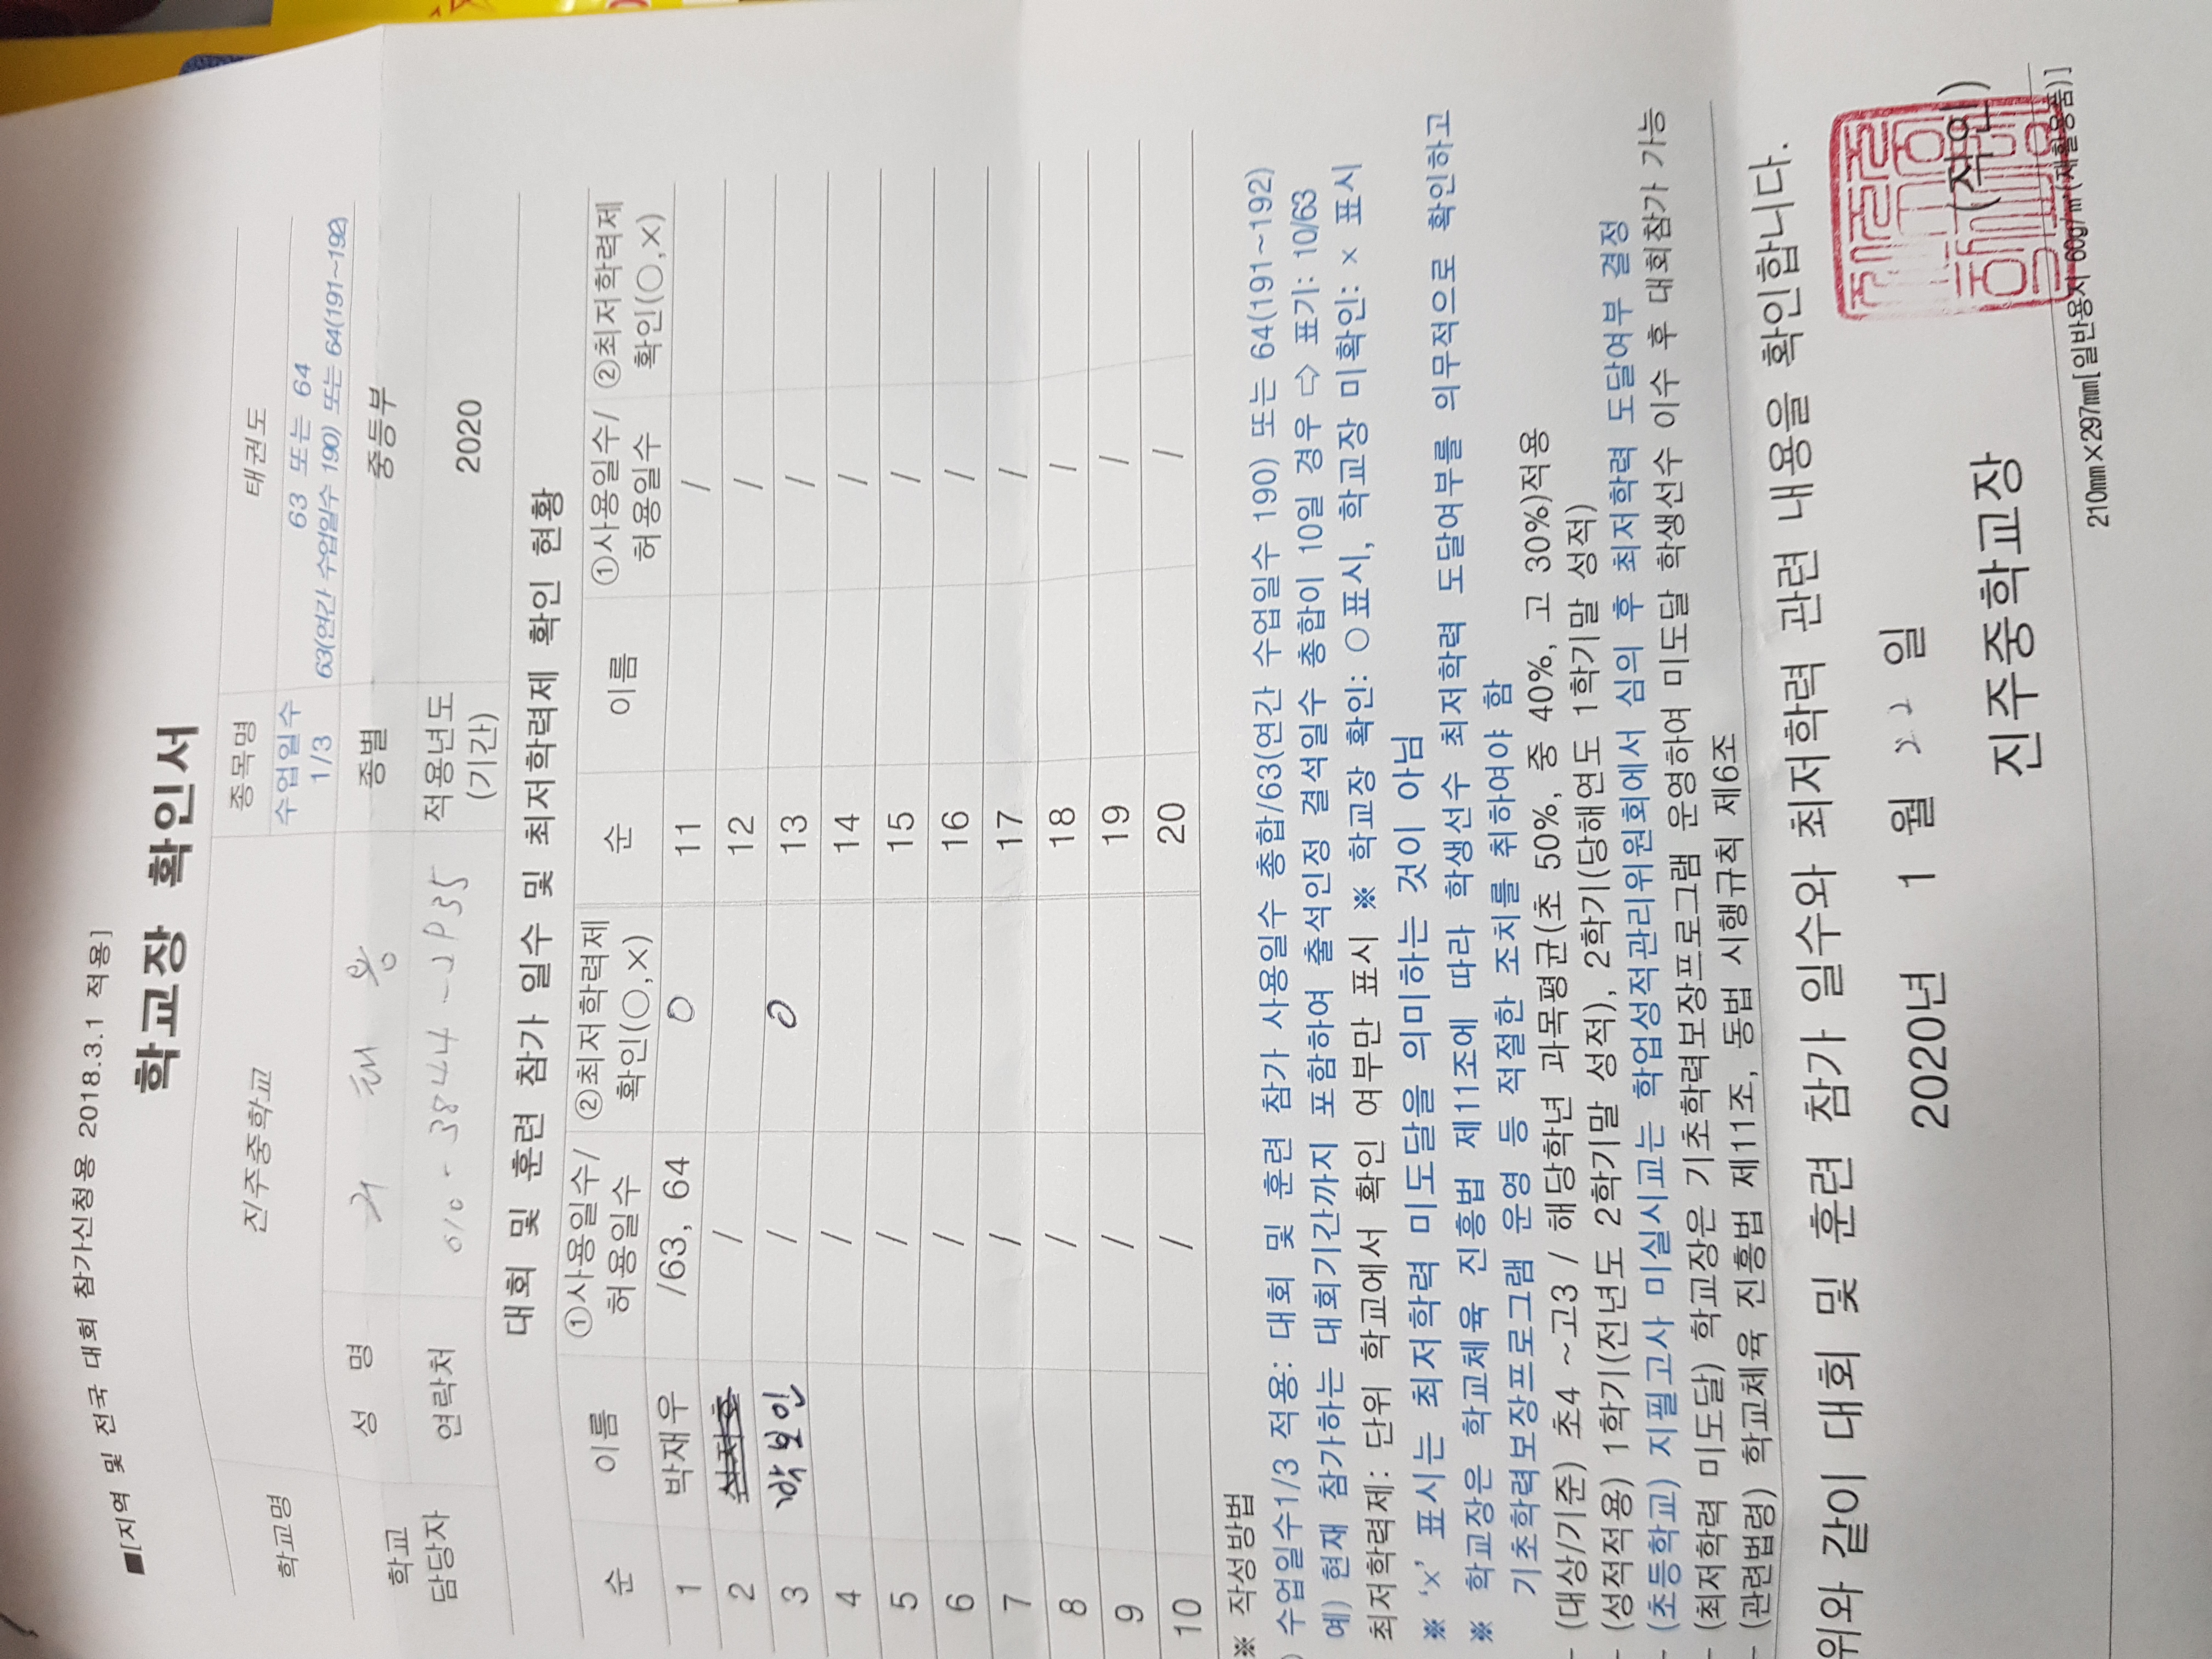 ■[지역 및 전국 대회 참가신청용 2018.3.1 적용]
학교장 확인서
학교명 진주중학교 종목명 태권도
수업일수 1/3 63 또는 64
63(연간 수업일수 190) 또는 64(191~192)
학교 담당자 성 명 종별 중등부
연락처 010-3844-2935 적용년도 (기간) 2020
대회 및 훈련 참가 일수 및 최저학력제 확인 현황
순 이름 ①사용일수/허용일수 ②최저학력제 확인(○,×) 순 이름 ①사용일수/허용일수 ②최저학력제 확인(○,×)
1 박재우 /63, 64 O 11 /
2 / 12 /
3 박보인 / O 13 /
4 / 14 /
5 / 15 /
6 / 16 /
7 / 17 /
8 / 18 /
9 / 19 /
10 / 20 /
※ 작성방법
수업일수1/3 적용: 대회 및 훈련 참가 사용일수 총합/63(연간 수업일수 190) 또는 64(191~192)
예) 현재 참가하는 대회기간까지 포함하여 출석인정 결석일수 총합이 10일 경우 ⇨ 표기: 10/63
최저학력제: 단위 학교에서 확인 여부만 표시 ※ 학교장 확인: ○표시, 학교장 미확인: × 표시
※ '×' 표시는 최저학력 미도달을 의미하는 것이 아님
※ 학교장은 학교체육 진흥법 제11조에 따라 학생선수 최저학력 도달여부를 의무적으로 확인하고
기초학력보장프로그램 운영 등 적절한 조치를 취하여야 함
- (대상/기준) 초4 ~고3 / 해당학년 과목평균(초 50%, 중 40%, 고 30%)적용
- (성적적용) 1학기(전년도 2학기말 성적), 2학기(당해연도 1학기말 성적)
- (초등학교) 지필고사 미실시교는 학업성적관리위원회에서 심의 후 최저학력 도달여부 결정
- (최저학력 미도달) 학교장은 기초학력보장프로그램 운영하여 미도달 학생선수 이수 후 대회참가 가능
- (관련법령) 학교체육 진흥법 제11조, 동법 시행규칙 제6조
위와 같이 대회 및 훈련 참가 일수와 최저학력 관련 내용을 확인합니다.
2020년 1 월 22 일
진주중학교장 (직인)
210㎜×297㎜[일반용지 60g/㎡(재활용품)]